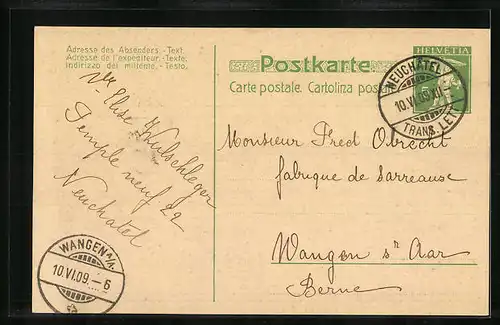 Adresse des Absenders. - Text.
Adresse de l'expéditeur. - Texte.
Indirizzo del mittente. - Testo.
Elise
Temple neuf 22
Neuchatel
Postkarte
Carte postale. Cartolina pos
HELVETIA
5
NEUCHÂTEL
10.VI.09.XI
TRANS. LETT.
Monsieur Fred Obrecht
fabrique de Sarreause
Wangen s/r Aar
Berne
WANGEN a/A.
10.VI.09.-6